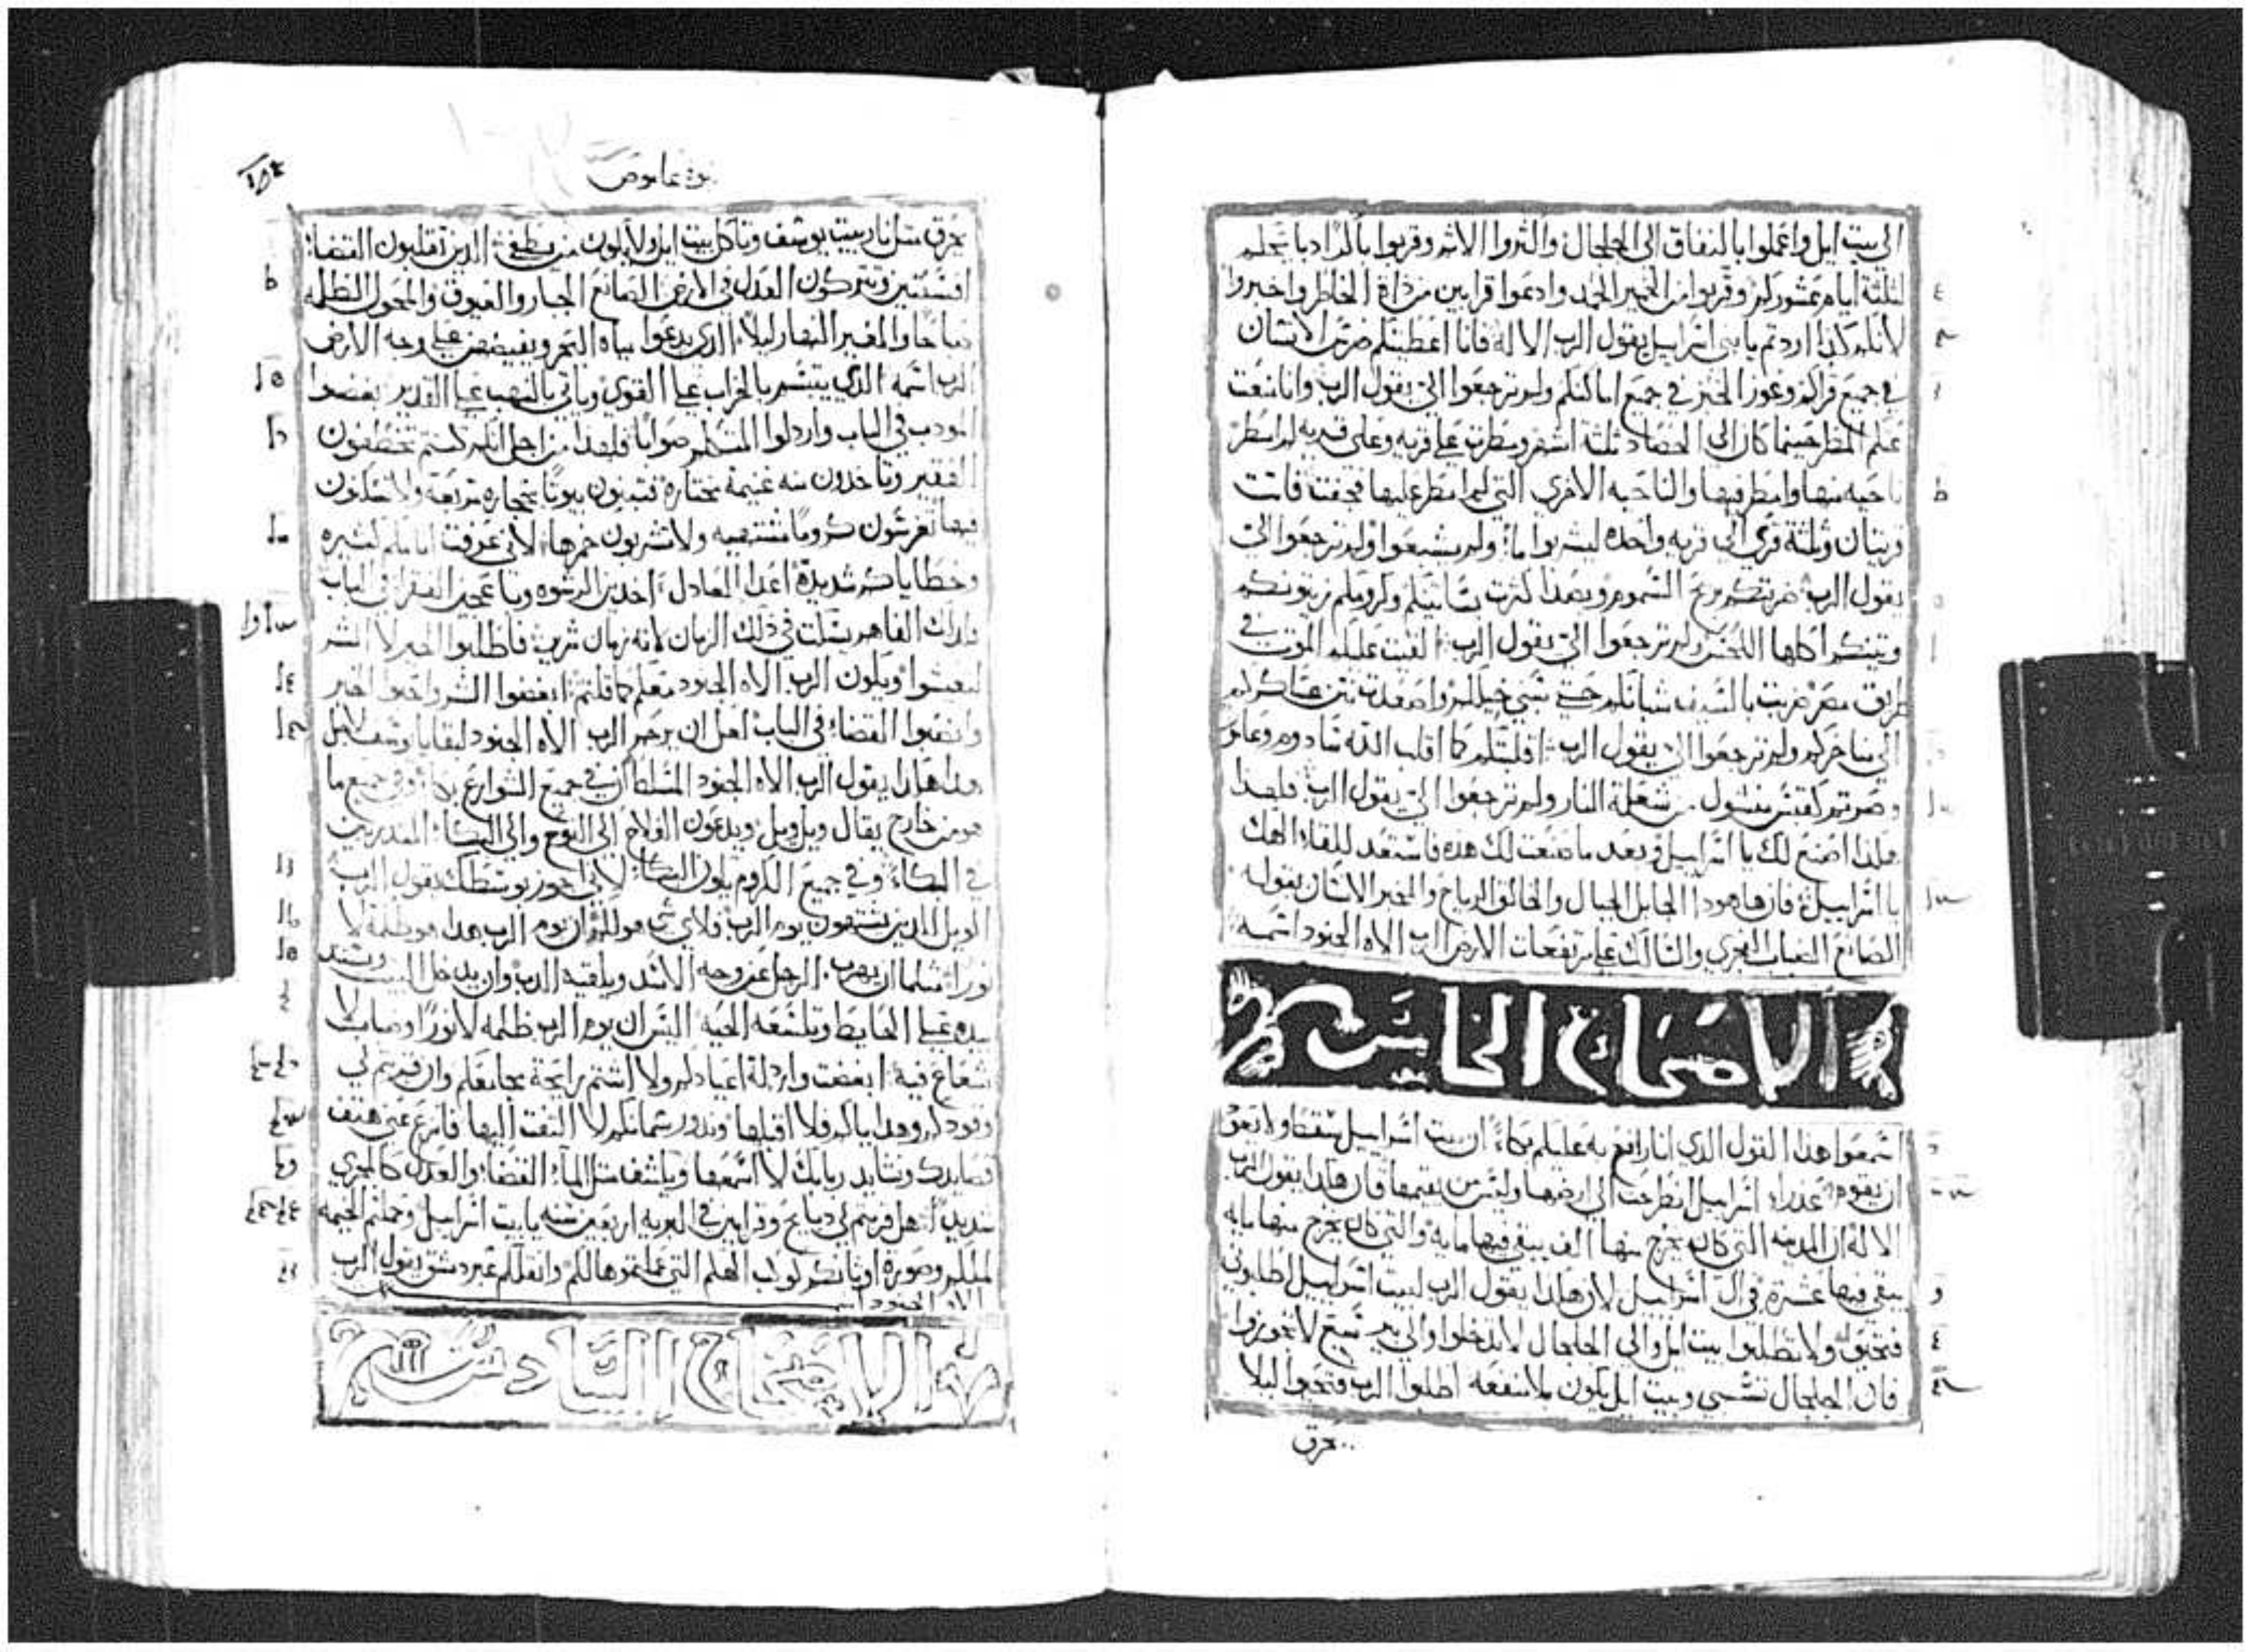 الى بيت ايل واعملوا بالنفاق الى الجلجال واكثروا الاثم وقربوا بالغداة ذبائحكم
لثلثة ايام عشوركم وقربوا من الخمير الحمد وادعوا قرابين من ذاة الخاطر واخبروا
لانكم كذا اردتم يا بني اسراييل يقول الرب الاله فانا اعطيتكم ضرس الاسنان
في جميع قراكم وعوز الخبز في جميع اماكنكم ولم ترجعوا اليّ يقول الرب وانا منعت
عنكم المطر حينما كان الى الحصاد ثلثة اشهر ومطرت على قريه وعلى قريه لم امطر
ناحيه منها وامطر فيها والناحيه الاخري التي لم امطر عليها فجفت فاتت
قريتان وثلثة قري الى قريه واحده ليشربوا ما ولم يشبعوا ولم ترجعوا اليّ
يقول الرب ضربتكم بريح السموم وبهذا كثرت بساتينكم وكرومكم زيتونكم
وتينكم اكلها ولم ترجعوا اليّ يقول الرب القيت عليكم الموت في
طريق مصر ضربت بالسيف شبانكم حتى سبي خيلكم واصعدت نتن عساكركم
الى مناخركم ولم ترجعوا اليّ يقول الرب اقلبتكم كما اقلب الله سادوم وعامورا
وصرتم كقبس منشول من شعلة النار ولم ترجعوا اليّ يقول الرب فلهذا
هكذا اصنع لك يا اسراييل وبعد ما صنعت لك هذه فاستعد للقاء الهك
يا اسراييل فان هاهوذا الجابل الجبال والخالق الرياح والمخبر الانسان بقوله
الصانع الضباب الفجري والسالك على مرتفعات الارض الرب الاه الجنود اسمه
الاصحاح الخامس
اسمعوا هذا القول الذي انا رافع به عليكم بكاء ان بيت اسراييل سقط ولا يعود
ان يقوم عذراء اسراييل انطرحت الى ارضها وليس من يقيمها فان هكذا يقول الرب
الاله ان المدينه التي كان يخرج منها الف يبقى فيها مايه والتي كان يخرج منها مايه
يبقى فيها عشرة في آل اسراييل لان هكذا يقول الرب لبيت اسراييل اطلبوني
فتحيون ولا تطلبوا بيت ايل والى الجلجال لا تدخلوا والى بير سبع لا تجوزوا
فان الجلجال تسبي وبيت ايل يكون بلا منفعه اطلبوا الرب فتحيوا ليلا
يحرق
نبوة عاموص
يحرق مثل نار بيت يوسف وتاكل بيت ايل ولا يكون من يطفي الذين تقلبون القضاء
افسنتين وتتركون العدل في الارض الصانع الجبار والعيوق والمحول الظلمه
صباحا والمغير النهار ليلا الذي يدعوا مياه البحر ويفيضهن على وجه الارض
الرب اسمه الذي يبتسم بالخراب على القوي وياتي بالنهب على القدير بغضوا
المودب في الباب وارذلوا المتكلم صوابا فلهذا من اجل انكم كنتم تخطفون
الفقير وتاخذون منه غنيمة مختارة فتبنون بيوتا بحجاره مربعه ولا تسكنون
فيها تغرسون كروما مشتهيه ولا تشربون خمرها لاني عرفت اثامكم كثيره
وخطاياكم شديدة اعدا العادل اخذين الرشوه الفقرا في الباب
الفاهم يسكت في ذلك الزمان لانه زمان شرير فاطلبوا الخير لا الشر
لتعيشوا ويكون الرب الاه الجنود معكم كما قلتم ابغضوا الشر واحبوا الخير
وانصبوا القضاء في الباب لعل ان يرحم الرب الاه الجنود لبقايا يوسف لاجل
هذا هكذا يقول الرب الاه الجنود المتسلط ان في جميع الشوارع بكاء وفي جميع ما
هو من خارج يقال ويل ويل ويدعون الفلاح الى النوح والى البكاء المتدربين
في البكاء وفي جميع الكروم يكون البكاء لاني اجوز بوسطك يقول الرب
الويل للذين يشتهون يوم الرب فلاي شي هو لكم ان يوم الرب هذا هو ظلمه لا
نورا مثلما ان يهرب الرجل عن وجه الاسد ويلقيه الدب وان يدخل البيت ويسند
يده على الحايط وتلسعه الحيه اليس ان يوم الرب ظلمه لا نورا وضباب لا
شعاع فيه ابغضت وارذلة اعيادكم ولا اشتم رايحة مجامعكم وان قربتم لي
وقودكم وهداياكم فلا اقبلها ونذور سمانكم لا التفت اليها فانزع عني هتف
قصايدك ونشايد ربابك لا اسمعها وينكشف مثل الماء القضاء والعدل كالمجري
شديد هل قربتم لي ذبايح وقرابين في البريه اربعين سنه يا بيت اسراييل وحملتم الخيمه
لملككم وصورة اوثانكم كوكب الهكم التي عملتموها لكم وانقلكم عبر دمشق يقول الرب
الاه الجنود اسمه
الاصحاح السادس